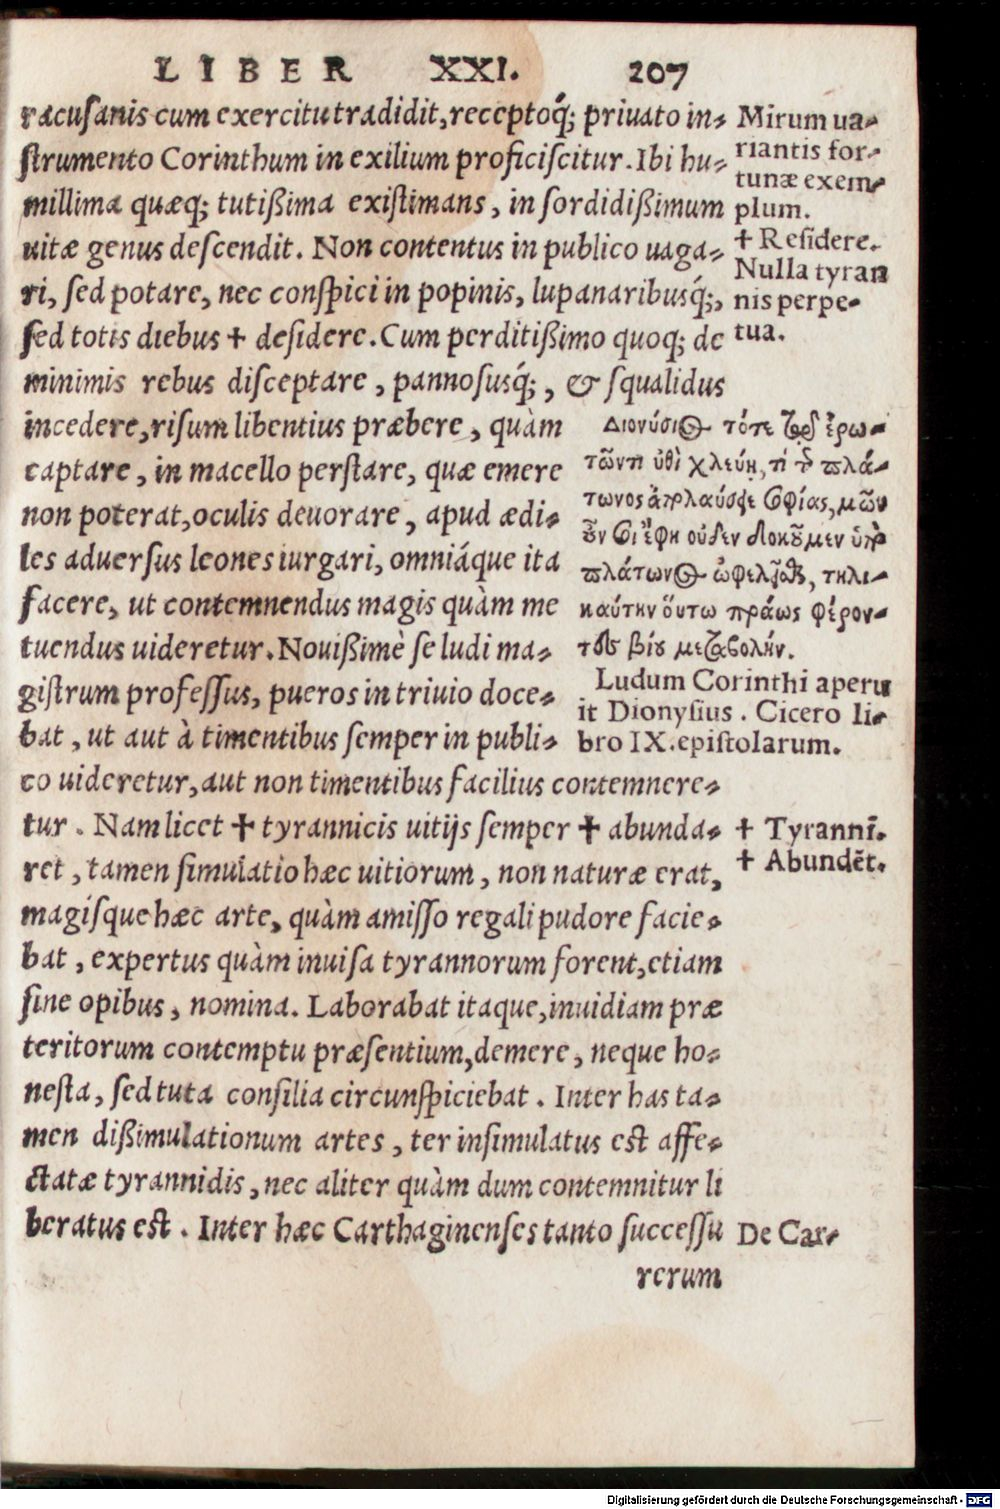 LIBER XXI. 207
racuſanis cum exercitu tradidit, receptoq́; priuato in-
ſtrumento Corinthum in exilium proficiſcitur. Ibi hu-
millima quæq; tutißima exiſtimans, in ſordidißimum
uitæ genus deſcendit. Non contentus in publico uaga-
ri, ſed potare, nec conſpici in popinis, lupanaribusq́;,
ſed totis diebus + deſidere. Cum perditißimo quoq; de
minimis rebus diſceptare, pannoſusq́;, & ſqualidus
incedere, riſum libentius præbere, quàm
captare, in macello perſtare, quæ emere
non poterat, oculis deuorare, apud ædi-
les aduerſus leones iurgari, omniáque ita
facere, ut contemnendus magis quàm me
tuendus uideretur. Nouißimè ſe ludi ma-
giſtrum profeſſus, pueros in triuio doce-
bat, ut aut à timentibus ſemper in publi-
co uideretur, aut non timentibus facilius contemnere-
tur. Nam licet + tyrannicis uitijs ſemper + abunda-
ret, tamen ſimulatio hæc uitiorum, non naturæ erat,
magiſque hæc arte, quàm amiſſo regali pudore facie-
bat, expertus quàm inuiſa tyrannorum forent, etiam
ſine opibus, nomina. Laborabat itaque, inuidiam præ
teritorum contemptu præſentium, demere, neque ho-
neſta, ſed tuta conſilia circunſpiciebat. Inter has ta-
men dißimulationum artes, ter inſimulatus eſt affe-
ctatæ tyrannidis, nec aliter quàm dum contemnitur li
beratus eſt. Inter hæc Carthaginenſes tanto ſucceſſu
rerum
Mirum ua-
riantis for-
tunæ exem-
plum.
+ Reſidere.
Nulla tyran
nis perpe-
tua.
Διονύσιος τότε πρὸς ἐρω-
τῶντα χλεύῃ, τί πλά-
τωνος ἀπολαύσειε σοφίας, μῶν
οὖν σοι ἔφη οὐδὲν δοκοῦμεν ὑπὸ
πλάτωνος ὠφελῆσθαι, τηλι-
καύτην οὕτω πράως φέρον-
τες βίου μεταβολήν.
Ludum Corinthi aperu
it Dionyſius. Cicero li-
bro IX. epiſtolarum.
+ Tyranni.
+ Abundēt.
De Car-
Digitalisierung gefördert durch die Deutsche Forschungsgemeinschaft - DFG